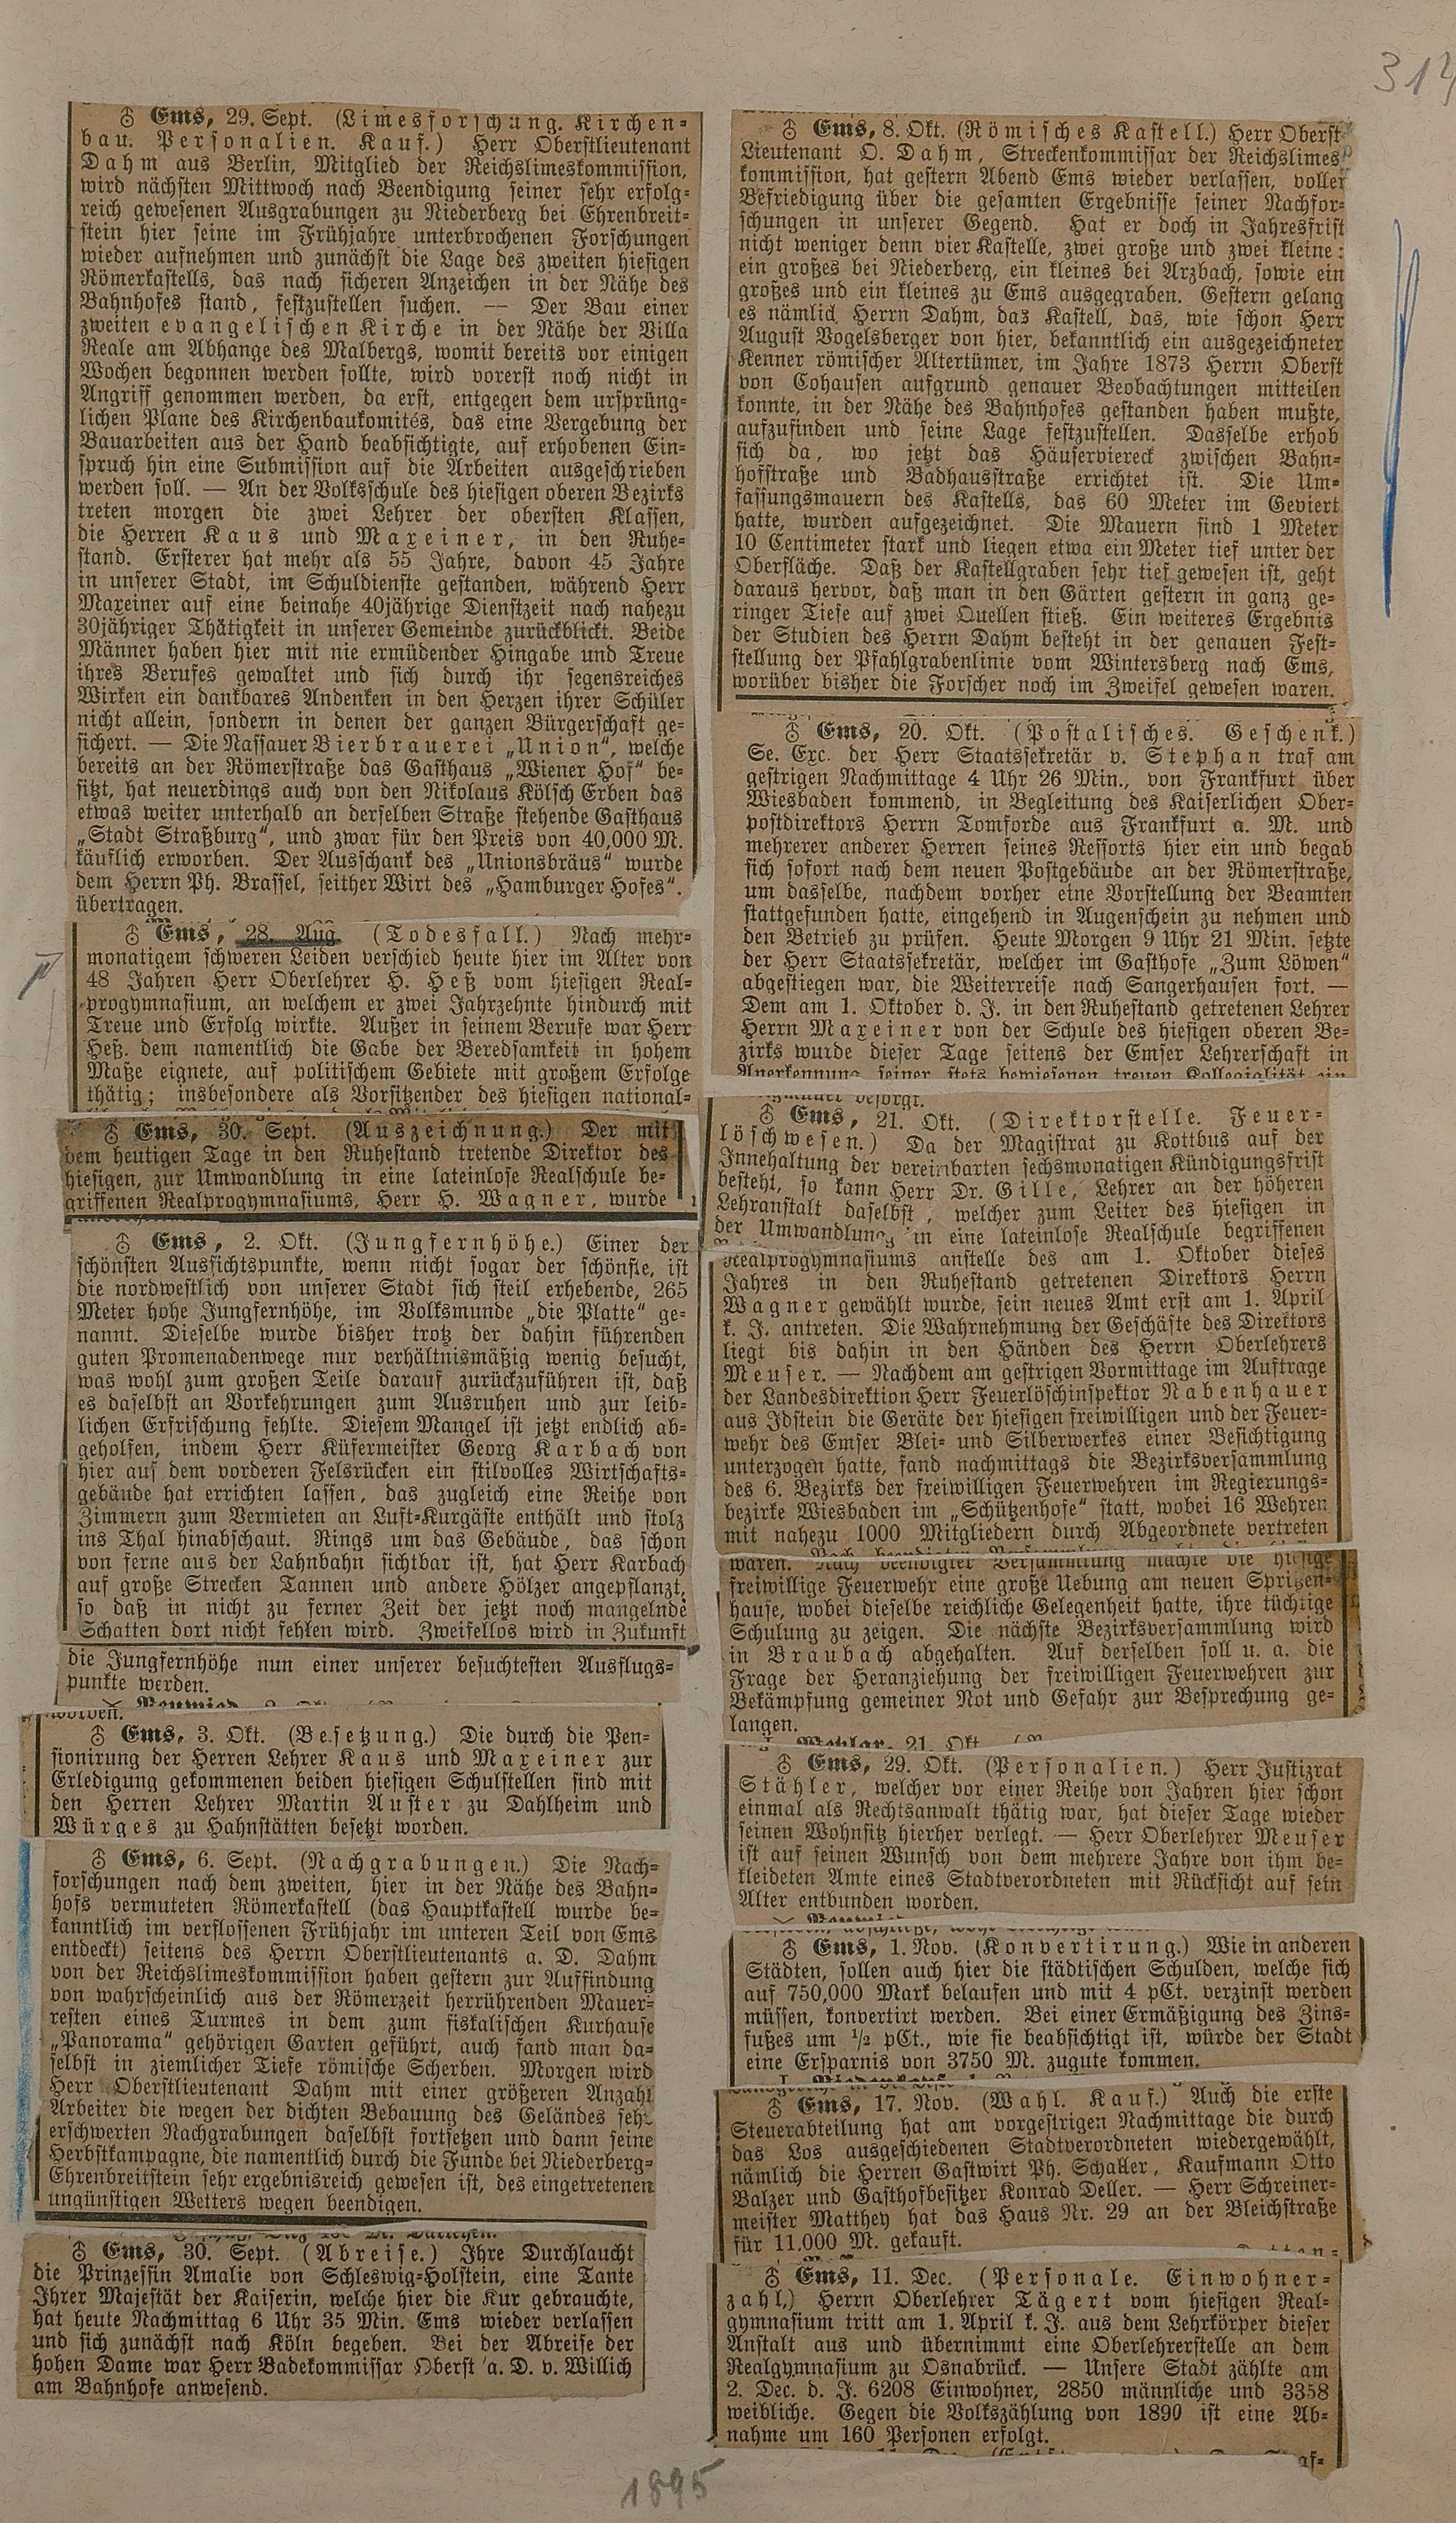 314
♁ Ems, 29. Sept. (Limesforschung. Kirchen-
bau. Personalien. Kauf.) Herr Oberstlieutenant
Dahm aus Berlin, Mitglied der Reichslimeskommission,
wird nächsten Mittwoch nach Beendigung seiner sehr erfolg-
reich gewesenen Ausgrabungen zu Niederberg bei Ehrenbreit-
stein hier seine im Frühjahre unterbrochenen Forschungen
wieder aufnehmen und zunächst die Lage des zweiten hiesigen
Römerkastells, das nach sicheren Anzeichen in der Nähe des
Bahnhofes stand, festzustellen suchen. — Der Bau einer
zweiten evangelischen Kirche in der Nähe der Villa
Reale am Abhange des Malbergs, womit bereits vor einigen
Wochen begonnen werden sollte, wird vorerst noch nicht in
Angriff genommen werden, da erst, entgegen dem ursprüng-
lichen Plane des Kirchenbaukomités, das eine Vergebung der
Bauarbeiten aus der Hand beabsichtigte, auf erhobenen Ein-
spruch hin eine Submission auf die Arbeiten ausgeschrieben
werden soll. — An der Volksschule des hiesigen oberen Bezirks
treten morgen die zwei Lehrer der obersten Klassen,
die Herren Kaus und Maxeiner, in den Ruhe-
stand. Ersterer hat mehr als 55 Jahre, davon 45 Jahre
in unserer Stadt, im Schuldienste gestanden, während Herr
Maxeiner auf eine beinahe 40jährige Dienstzeit nach nahezu
30jähriger Thätigkeit in unserer Gemeinde zurückblickt. Beide
Männer haben hier mit nie ermüdender Hingabe und Treue
ihres Berufes gewaltet und sich durch ihr segensreiches
Wirken ein dankbares Andenken in den Herzen ihrer Schüler
nicht allein, sondern in denen der ganzen Bürgerschaft ge-
sichert. — Die Nassauer Bierbrauerei „Union“, welche
bereits an der Römerstraße das Gasthaus „Wiener Hof“ be-
sitzt, hat neuerdings auch von den Nikolaus Kölsch Erben das
etwas weiter unterhalb an derselben Straße stehende Gasthaus
„Stadt Straßburg“, und zwar für den Preis von 40,000 M.
käuflich erworben. Der Ausschank des „Unionsbräus“ wurde
dem Herrn Ph. Brassel, seither Wirt des „Hamburger Hofes“.
übertragen.
♁ Ems, 28. Aug. (Todesfall.) Nach mehr-
monatigem schweren Leiden verschied heute hier im Alter von
48 Jahren Herr Oberlehrer H. Heß vom hiesigen Real-
progymnasium, an welchem er zwei Jahrzehnte hindurch mit
Treue und Erfolg wirkte. Außer in seinem Berufe war Herr
Heß, dem namentlich die Gabe der Beredsamkeit in hohem
Maße eignete, auf politischem Gebiete mit großem Erfolge
thätig; insbesondere als Vorsitzender des hiesigen national-
♁ Ems, 30. Sept. (Auszeichnung.) Der mit
dem heutigen Tage in den Ruhestand tretende Direktor des
hiesigen, zur Umwandlung in eine lateinlose Realschule be-
griffenen Realprogymnasiums, Herr H. Wagner, wurde
♁ Ems, 2. Okt. (Jungfernhöhe.) Einer der
schönsten Aussichtspunkte, wenn nicht sogar der schönste, ist
die nordwestlich von unserer Stadt sich steil erhebende, 265
Meter hohe Jungfernhöhe, im Volksmunde „die Platte“ ge-
nannt. Dieselbe wurde bisher trotz der dahin führenden
guten Promenadenwege nur verhältnismäßig wenig besucht,
was wohl zum großen Teile darauf zurückzuführen ist, daß
es daselbst an Vorkehrungen zum Ausruhen und zur leib-
lichen Erfrischung fehlte. Diesem Mangel ist jetzt endlich ab-
geholfen, indem Herr Küfermeister Georg Karbach von
hier auf dem vorderen Felsrücken ein stilvolles Wirtschafts-
gebäude hat errichten lassen, das zugleich eine Reihe von
Zimmern zum Vermieten an Luft-Kurgäste enthält und stolz
ins Thal hinabschaut. Rings um das Gebäude, das schon
von ferne aus der Lahnbahn sichtbar ist, hat Herr Karbach
auf große Strecken Tannen und andere Hölzer angepflanzt,
so daß in nicht zu ferner Zeit der jetzt noch mangelnde
Schatten dort nicht fehlen wird. Zweifellos wird in Zukunft
die Jungfernhöhe nun einer unserer besuchtesten Ausflugs-
punkte werden.
♁ Ems, 3. Okt. (Besetzung.) Die durch die Pen-
sionirung der Herren Lehrer Kaus und Maxeiner zur
Erledigung gekommenen beiden hiesigen Schulstellen sind mit
den Herren Lehrer Martin Auster zu Dahlheim und
Würges zu Hahnstätten besetzt worden.
♁ Ems, 6. Sept. (Nachgrabungen.) Die Nach-
forschungen nach dem zweiten, hier in der Nähe des Bahn-
hofs vermuteten Römerkastell (das Hauptkastell wurde be-
kanntlich im verflossenen Frühjahr im unteren Teil von Ems
entdeckt) seitens des Herrn Oberstlieutenants a. D. Dahm
von der Reichslimeskommission haben gestern zur Auffindung
von wahrscheinlich aus der Römerzeit herrührenden Mauer-
resten eines Turmes in dem zum fiskalischen Kurhause
„Panorama“ gehörigen Garten geführt, auch fand man da-
selbst in ziemlicher Tiefe römische Scherben. Morgen wird
Herr Oberstlieutenant Dahm mit einer größeren Anzahl
Arbeiter die wegen der dichten Bebauung des Geländes sehr
erschwerten Nachgrabungen daselbst fortsetzen und dann seine
Herbstkampagne, die namentlich durch die Funde bei Niederberg-
Ehrenbreitstein sehr ergebnisreich gewesen ist, des eingetretenen
ungünstigen Wetters wegen beendigen.
♁ Ems, 30. Sept. (Abreise.) Ihre Durchlaucht
die Prinzessin Amalie von Schleswig-Holstein, eine Tante
Ihrer Majestät der Kaiserin, welche hier die Kur gebrauchte,
hat heute Nachmittag 6 Uhr 35 Min. Ems wieder verlassen
und sich zunächst nach Köln begeben. Bei der Abreise der
hohen Dame war Herr Badekommissar Oberst a. D. v. Willich
am Bahnhofe anwesend.
♁ Ems, 8. Okt. (Römisches Kastell.) Herr Oberst-
Lieutenant O. Dahm, Streckenkommissar der Reichslimes-
kommission, hat gestern Abend Ems wieder verlassen, voller
Befriedigung über die gesamten Ergebnisse seiner Nachfor-
schungen in unserer Gegend. Hat er doch in Jahresfrist
nicht weniger denn vier Kastelle, zwei große und zwei kleine:
ein großes bei Niederberg, ein kleines bei Arzbach, sowie ein
großes und ein kleines zu Ems ausgegraben. Gestern gelang
es nämlich Herrn Dahm, das Kastell, das, wie schon Herr
August Vogelsberger von hier, bekanntlich ein ausgezeichneter
Kenner römischer Altertümer, im Jahre 1873 Herrn Oberst
von Cohausen aufgrund genauer Beobachtungen mitteilen
konnte, in der Nähe des Bahnhofes gestanden haben mußte,
aufzufinden und seine Lage festzustellen. Dasselbe erhob
sich da, wo jetzt das Häuserviereck zwischen Bahn-
hofstraße und Badhausstraße errichtet ist. Die Um-
fassungsmauern des Kastells, das 60 Meter im Geviert
hatte, wurden aufgezeichnet. Die Mauern sind 1 Meter
10 Centimeter stark und liegen etwa ein Meter tief unter der
Oberfläche. Daß der Kastellgraben sehr tief gewesen ist, geht
daraus hervor, daß man in den Gärten gestern in ganz ge-
ringer Tiefe auf zwei Quellen stieß. Ein weiteres Ergebnis
der Studien des Herrn Dahm besteht in der genauen Fest-
stellung der Pfahlgrabenlinie vom Wintersberg nach Ems,
worüber bisher die Forscher noch im Zweifel gewesen waren.
♁ Ems, 20. Okt. (Postalisches. Geschenk.)
Se. Exc. der Herr Staatssekretär v. Stephan traf am
gestrigen Nachmittage 4 Uhr 26 Min., von Frankfurt über
Wiesbaden kommend, in Begleitung des Kaiserlichen Ober-
postdirektors Herrn Tomforde aus Frankfurt a. M. und
mehrerer anderer Herren seines Ressorts hier ein und begab
sich sofort nach dem neuen Postgebäude an der Römerstraße,
um dasselbe, nachdem vorher eine Vorstellung der Beamten
stattgefunden hatte, eingehend in Augenschein zu nehmen und
den Betrieb zu prüfen. Heute Morgen 9 Uhr 21 Min. setzte
der Herr Staatssekretär, welcher im Gasthofe „Zum Löwen“
abgestiegen war, die Weiterreise nach Sangerhausen fort. —
Dem am 1. Oktober d. J. in den Ruhestand getretenen Lehrer
Herrn Maxeiner von der Schule des hiesigen oberen Be-
zirks wurde dieser Tage seitens der Emser Lehrerschaft in
Anerkennung seiner stets bewiesenen treuen Kollegialität ein
besorgt.
♁ Ems, 21. Okt. (Direktorstelle. Feuer-
löschwesen.) Da der Magistrat zu Kottbus auf der
Innehaltung der vereinbarten sechsmonatigen Kündigungsfrist
besteht, so kann Herr Dr. Gille, Lehrer an der höheren
Lehranstalt daselbst, welcher zum Leiter des hiesigen in
der Umwandlung in eine lateinlose Realschule begriffenen
Realprogymnasiums anstelle des am 1. Oktober dieses
Jahres in den Ruhestand getretenen Direktors Herrn
Wagner gewählt wurde, sein neues Amt erst am 1. April
k. J. antreten. Die Wahrnehmung der Geschäfte des Direktors
liegt bis dahin in den Händen des Herrn Oberlehrers
Meuser. — Nachdem am gestrigen Vormittage im Auftrage
der Landesdirektion Herr Feuerlöschinspektor Nabenhauer
aus Idstein die Geräte der hiesigen freiwilligen und der Feuer-
wehr des Emser Blei- und Silberwerkes einer Besichtigung
unterzogen hatte, fand nachmittags die Bezirksversammlung
des 6. Bezirks der freiwilligen Feuerwehren im Regierungs-
bezirke Wiesbaden im „Schützenhofe“ statt, wobei 16 Wehren
mit nahezu 1000 Mitgliedern durch Abgeordnete vertreten
waren. Nach beendigter Versammlung machte die hiesige
freiwillige Feuerwehr eine große Uebung am neuen Spritzen-
hause, wobei dieselbe reichliche Gelegenheit hatte, ihre tüchtige
Schulung zu zeigen. Die nächste Bezirksversammlung wird
in Braubach abgehalten. Auf derselben soll u. a. die
Frage der Heranziehung der freiwilligen Feuerwehren zur
Bekämpfung gemeiner Not und Gefahr zur Besprechung ge-
langen.
♁ Ems, 29. Okt. (Personalien.) Herr Justizrat
Stähler, welcher vor einer Reihe von Jahren hier schon
einmal als Rechtsanwalt thätig war, hat dieser Tage wieder
seinen Wohnsitz hierher verlegt. — Herr Oberlehrer Meuser
ist auf seinen Wunsch von dem mehrere Jahre von ihm be-
kleideten Amte eines Stadtverordneten mit Rücksicht auf sein
Alter entbunden worden.
♁ Ems, 1. Nov. (Konvertirung.) Wie in anderen
Städten, sollen auch hier die städtischen Schulden, welche sich
auf 750,000 Mark belaufen und mit 4 pCt. verzinst werden
müssen, konvertirt werden. Bei einer Ermäßigung des Zins-
fußes um ½ pCt., wie sie beabsichtigt ist, würde der Stadt
eine Ersparnis von 3750 M. zugute kommen.
♁ Ems, 17. Nov. (Wahl. Kauf.) Auch die erste
Steuerabteilung hat am vorgestrigen Nachmittage die durch
das Los ausgeschiedenen Stadtverordneten wiedergewählt,
nämlich die Herren Gastwirt Ph. Schaller, Kaufmann Otto
Balzer und Gasthofbesitzer Konrad Deller. — Herr Schreiner-
meister Matthey hat das Haus Nr. 29 an der Bleichstraße
für 11,000 M. gekauft.
♁ Ems, 11. Dec. (Personale. Einwohner-
zahl.) Herrn Oberlehrer Tägert vom hiesigen Real-
gymnasium tritt am 1. April k. J. aus dem Lehrkörper dieser
Anstalt aus und übernimmt eine Oberlehrerstelle an dem
Realgymnasium zu Osnabrück. — Unsere Stadt zählte am
2. Dec. d. J. 6208 Einwohner, 2850 männliche und 3358
weibliche. Gegen die Volkszählung von 1890 ist eine Ab-
nahme um 160 Personen erfolgt.
1895